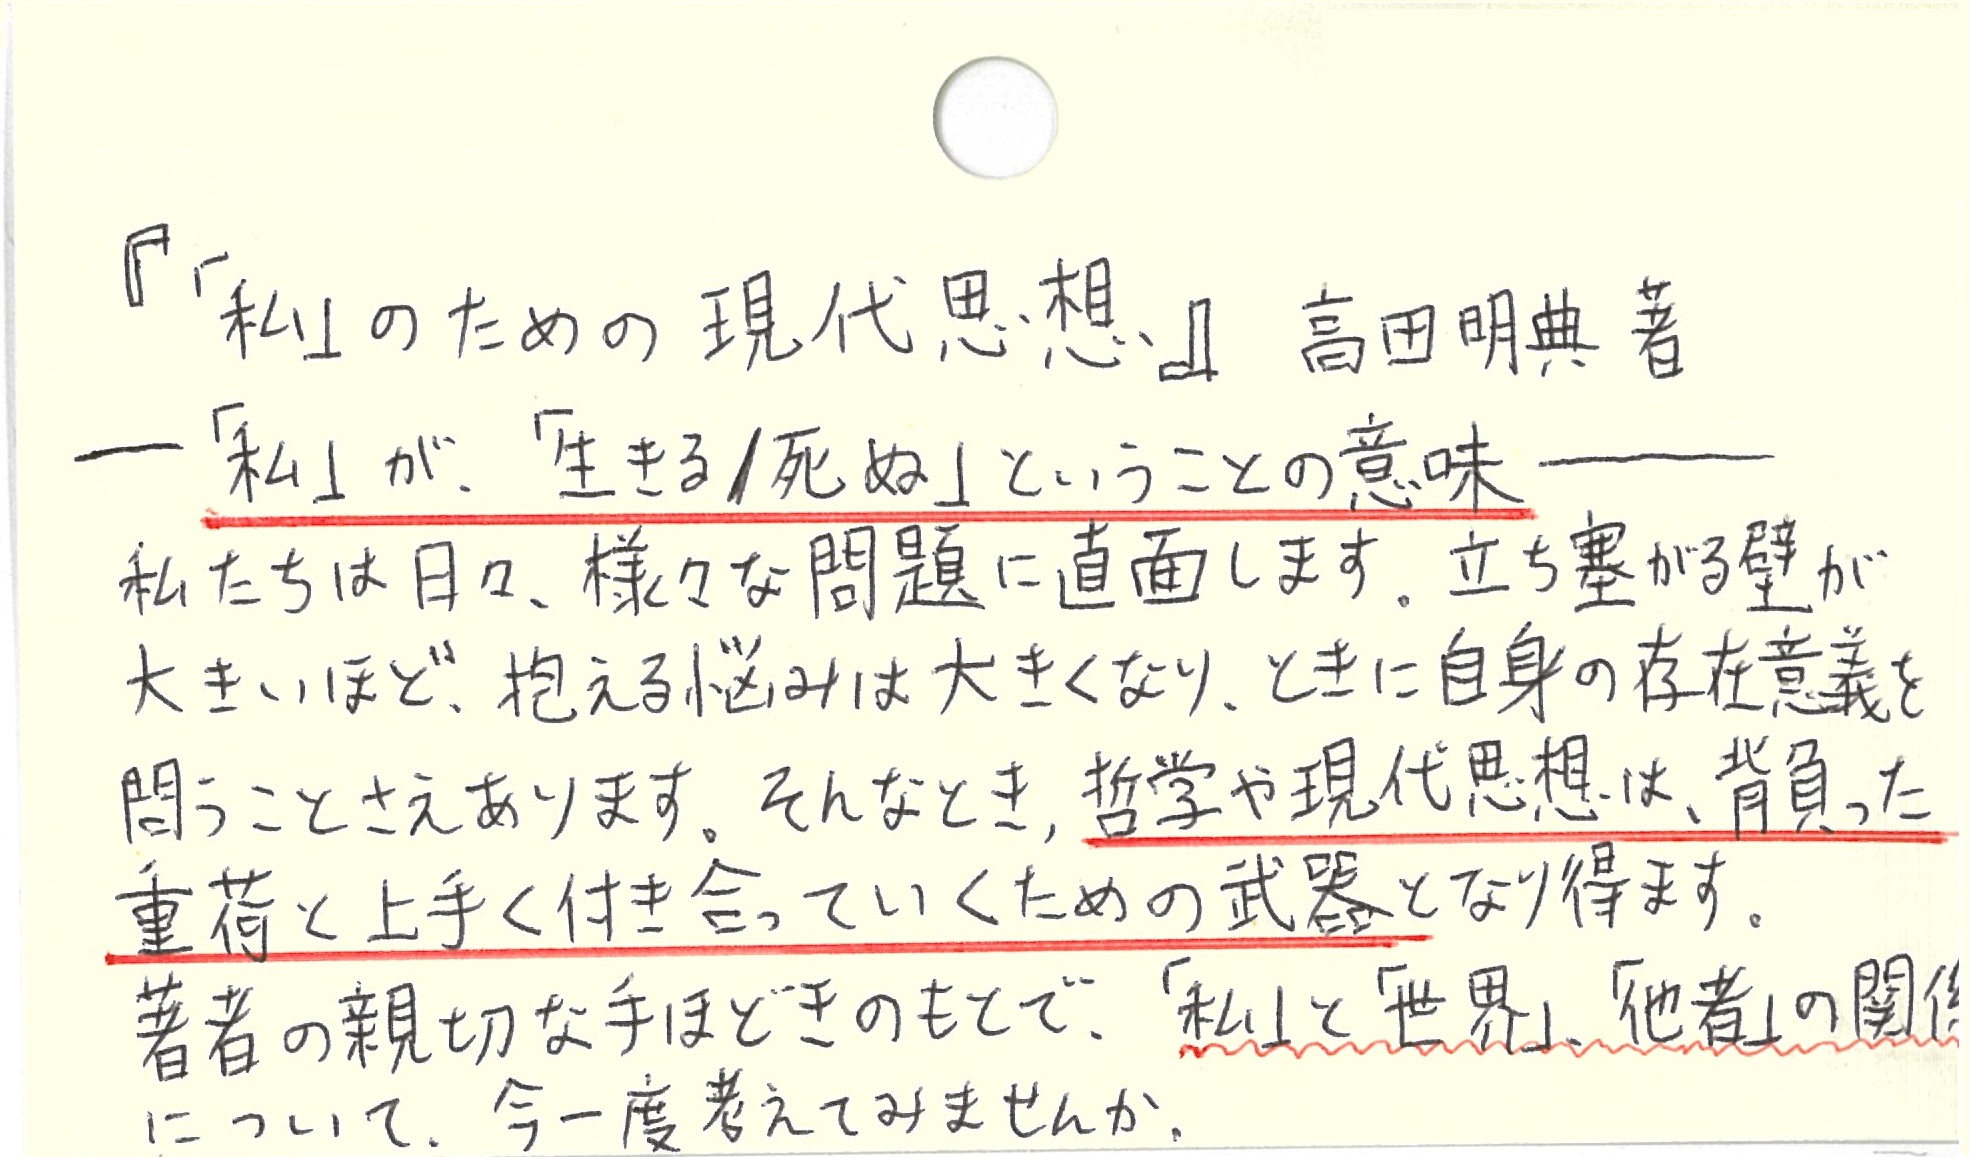 『「私」のための現代思想』 高田明典 著
―「私」が、「生きる/死ぬ」ということの意味――
私たちは日々、様々な問題に直面します。立ち塞がる壁が
大きいほど、抱える悩みは大きくなり、ときに自身の存在意義を
問うことさえあります。そんなとき、哲学や現代思想は、背負った
重荷と上手く付き合っていくための武器となり得ます。
著者の親切な手ほどきのもとで、「私」と「世界」、「他者」の関係
について、今一度考えてみませんか。